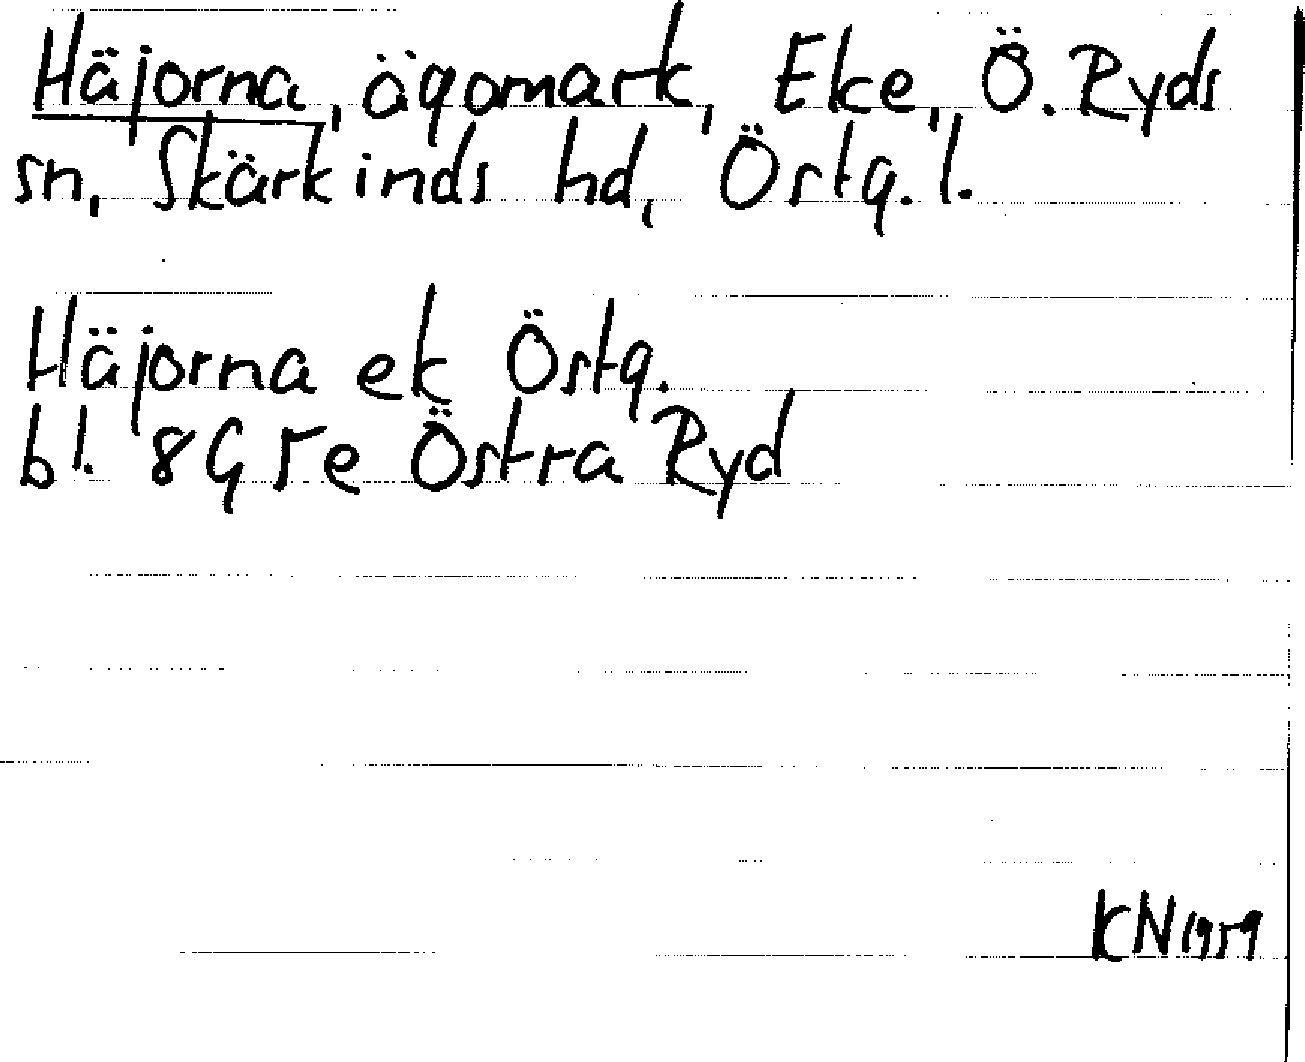 Häjorna, ägomark, Eke, Ö. Ryds
sn, Skärkinds hd, Östg. l.
Häjorna ek Östg.
bl. 8G 5e Östra Ryd
KN 1959